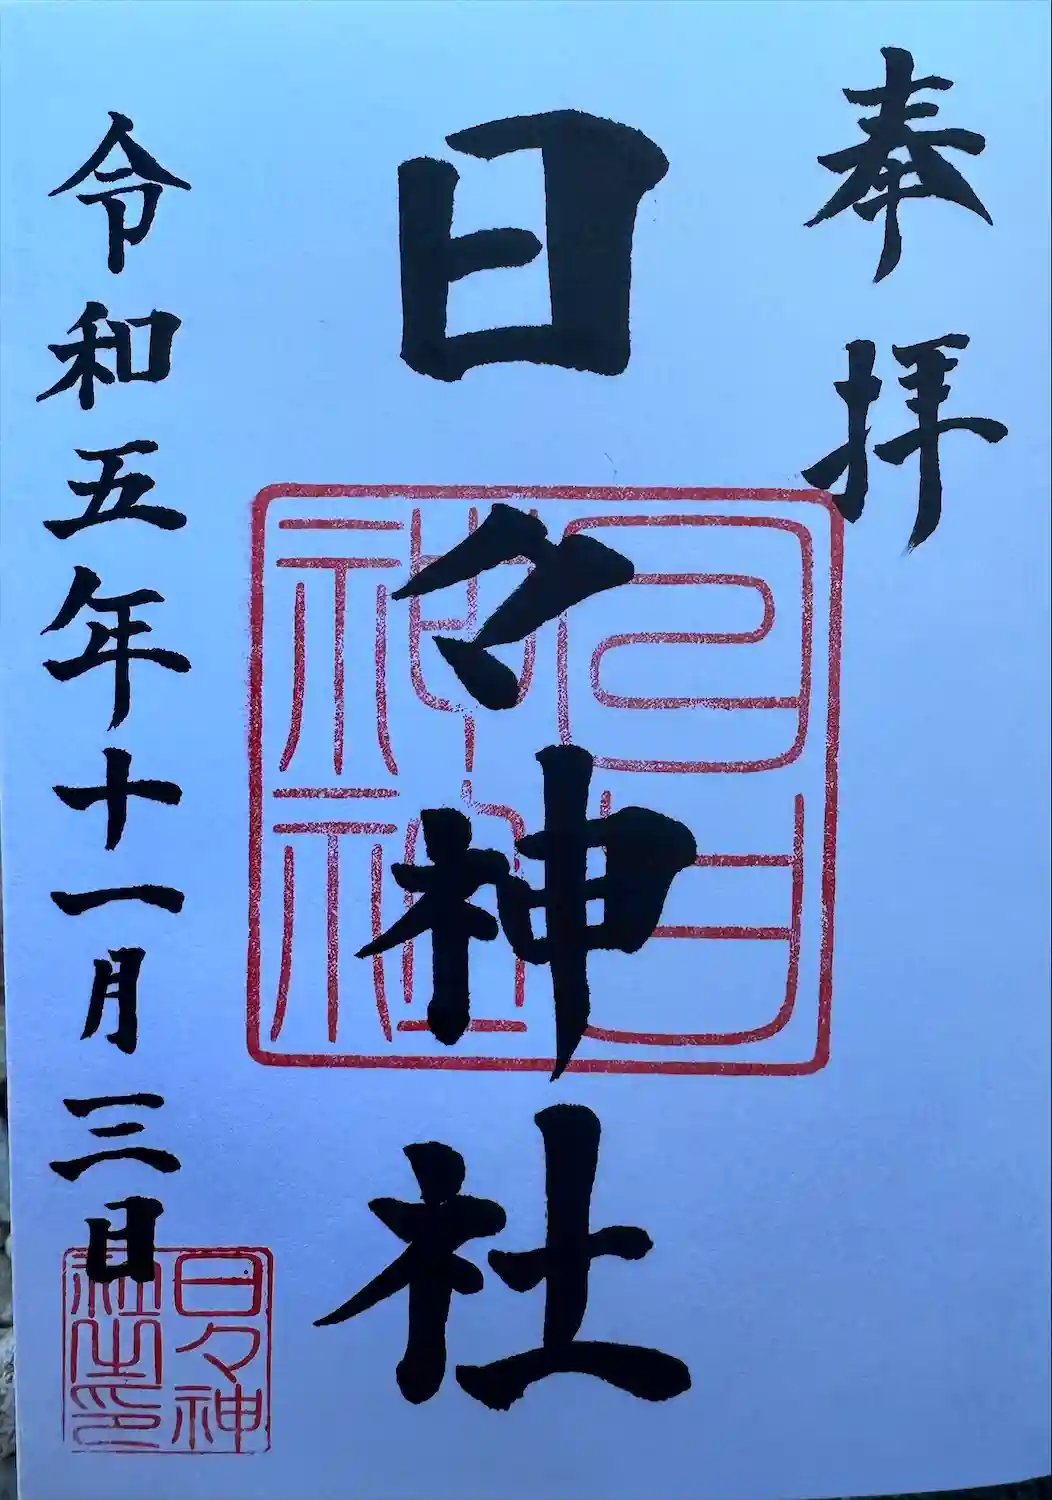 奉拝
日々神社
令和五年十一月三日
日日
神社
日々神
社之印